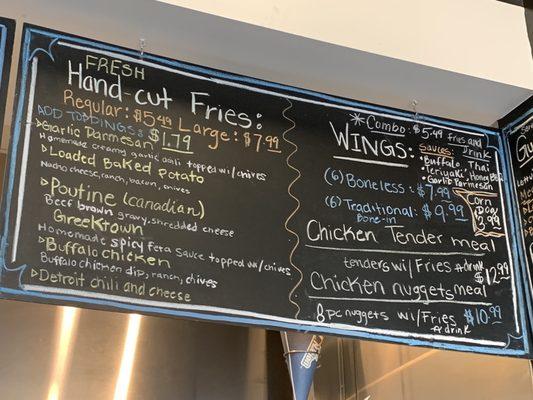 FRESH
Hand-cut Fries:
Regular: $5.49 Large: $7.99
ADD TOPPINGS: $1.79
▷Garlic Parmesan
Homemade creamy garlic aioli topped w/chives
▷Loaded Baked Potato
Nacho cheese, ranch, bacon, chives
▷Poutine (canadian)
Beef brown gravy, shredded cheese
Greektown
Homemade spicy feta sauce topped w/chives
▷Buffalo chicken
Buffalo chicken dip, ranch, chives
▷Detroit chili and cheese
*Combo: $5.49 fries and Drink
WINGS:
Sauces:
•Buffalo •Thai
•Teriyaki •Honey BBQ
•Garlic Parmesan
(6) Boneless: $7.99
(6) Traditional: $9.99
Bone-in
Corn
Dog
2.99
Chicken Tender meal
tenders w/Fries a drink $12.99
Chicken nuggets meal
8pc nuggets w/Fries $10.99
a drink